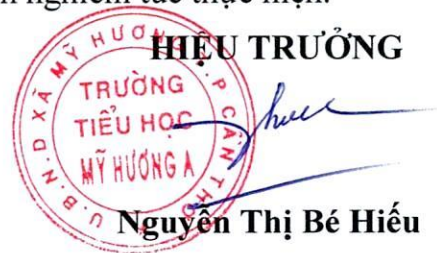 nghiêm túc thực hiện.
HIỆU TRƯỞNG
U.B.N.D XÃ MỸ HƯƠNG T.P CẦN THƠ
TRƯỜNG
TIỂU HỌC
MỸ HƯƠNG A
Nguyễn Thị Bé Hiếu